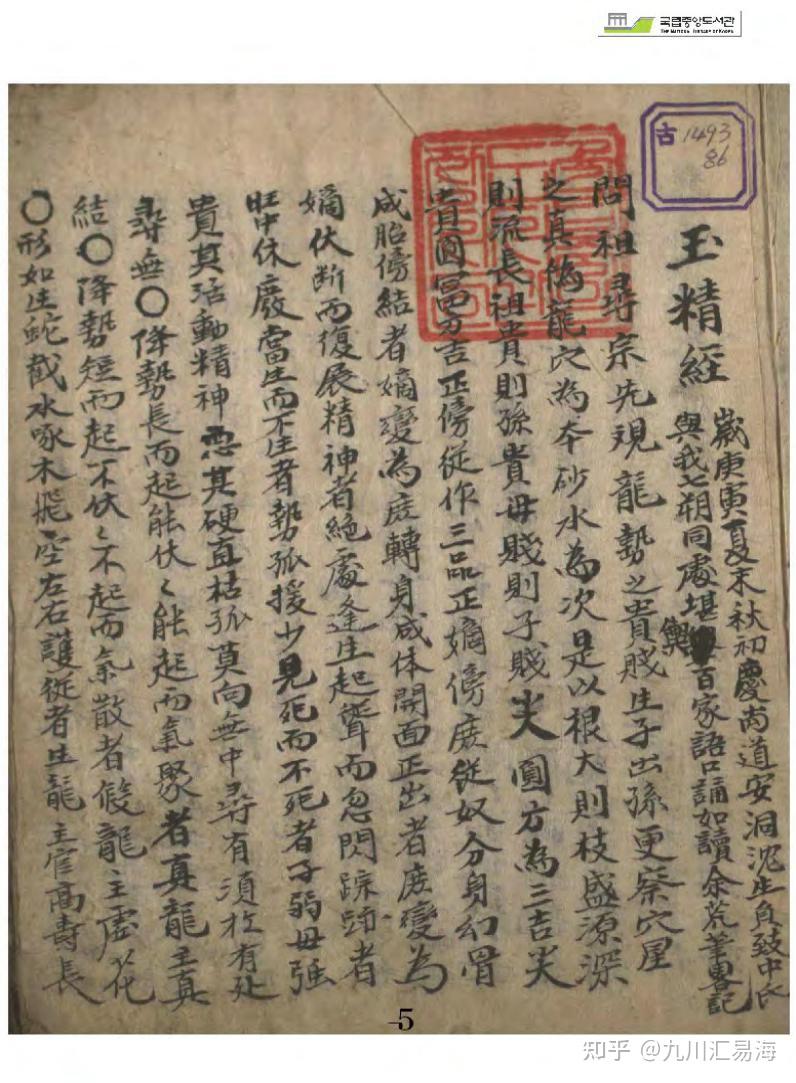 국립중앙도서관
THE NATIONAL LIBRARY OF KOREA
古 1493
86
玉精經
歲庚寅夏末秋初慶尚道安洞沈生員致中氏
與我七朔同處堪輿百家語口誦如讀余荒筆畧記
問祖尋宗先覌龍勢之貴賤生子出孫更察穴星
之真偽龍穴為本砂水為次是以根大則枝盛源深
則流長祖貴則孫貴母賤則子賤尖圓方為三吉尖
貴圓富方吉正傍從作三品正嫡傍庶從奴分身幻骨
成胎傍結者嫡變為庶轉身成体開面正出者庶變為
嫡伏断而復展精神者絶處逢生起聳而忽閃踪跡者
旺中休廢當生而不生者勢孤援少見死而不死者子弱母強
貴其活動精神惡其硬直枯孤莫向無中尋有須於有処
尋無〇降勢長而起能伏〻能起而氣聚者真龍主真
結〇降勢短而起不伏〻不起而氣散者假龍主虛花
〇形如生蛇截水啄木飛空左右護從者生龍主官高壽長
-5
知乎 @九川汇易海